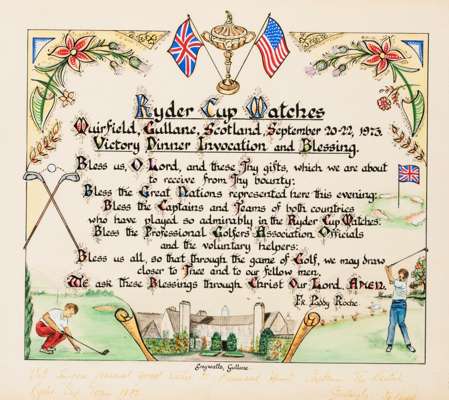 Ryder Cup Matches
Muirfield, Gullane, Scotland, September 20-22, 1973.
Victory Dinner Invocation and Blessing.
Bless us, O Lord, and these Thy gifts, which we are about
to receive from Thy bounty:
Bless the Great Nations represented here this evening:
Bless the Captains and Teams of both countries
who have played so admirably in the Ryder Cup Matches:
Bless the Professional Golfers' Association Officials
and the voluntary helpers:
Bless us all, so that through the game of Golf, we may draw
closer to Thee and to our fellow men,
We ask these Blessings through Christ Our Lord. AMEN.
Fr. Paddy Roche.
Greywalls, Gullane
Ryder Cup Team 1973